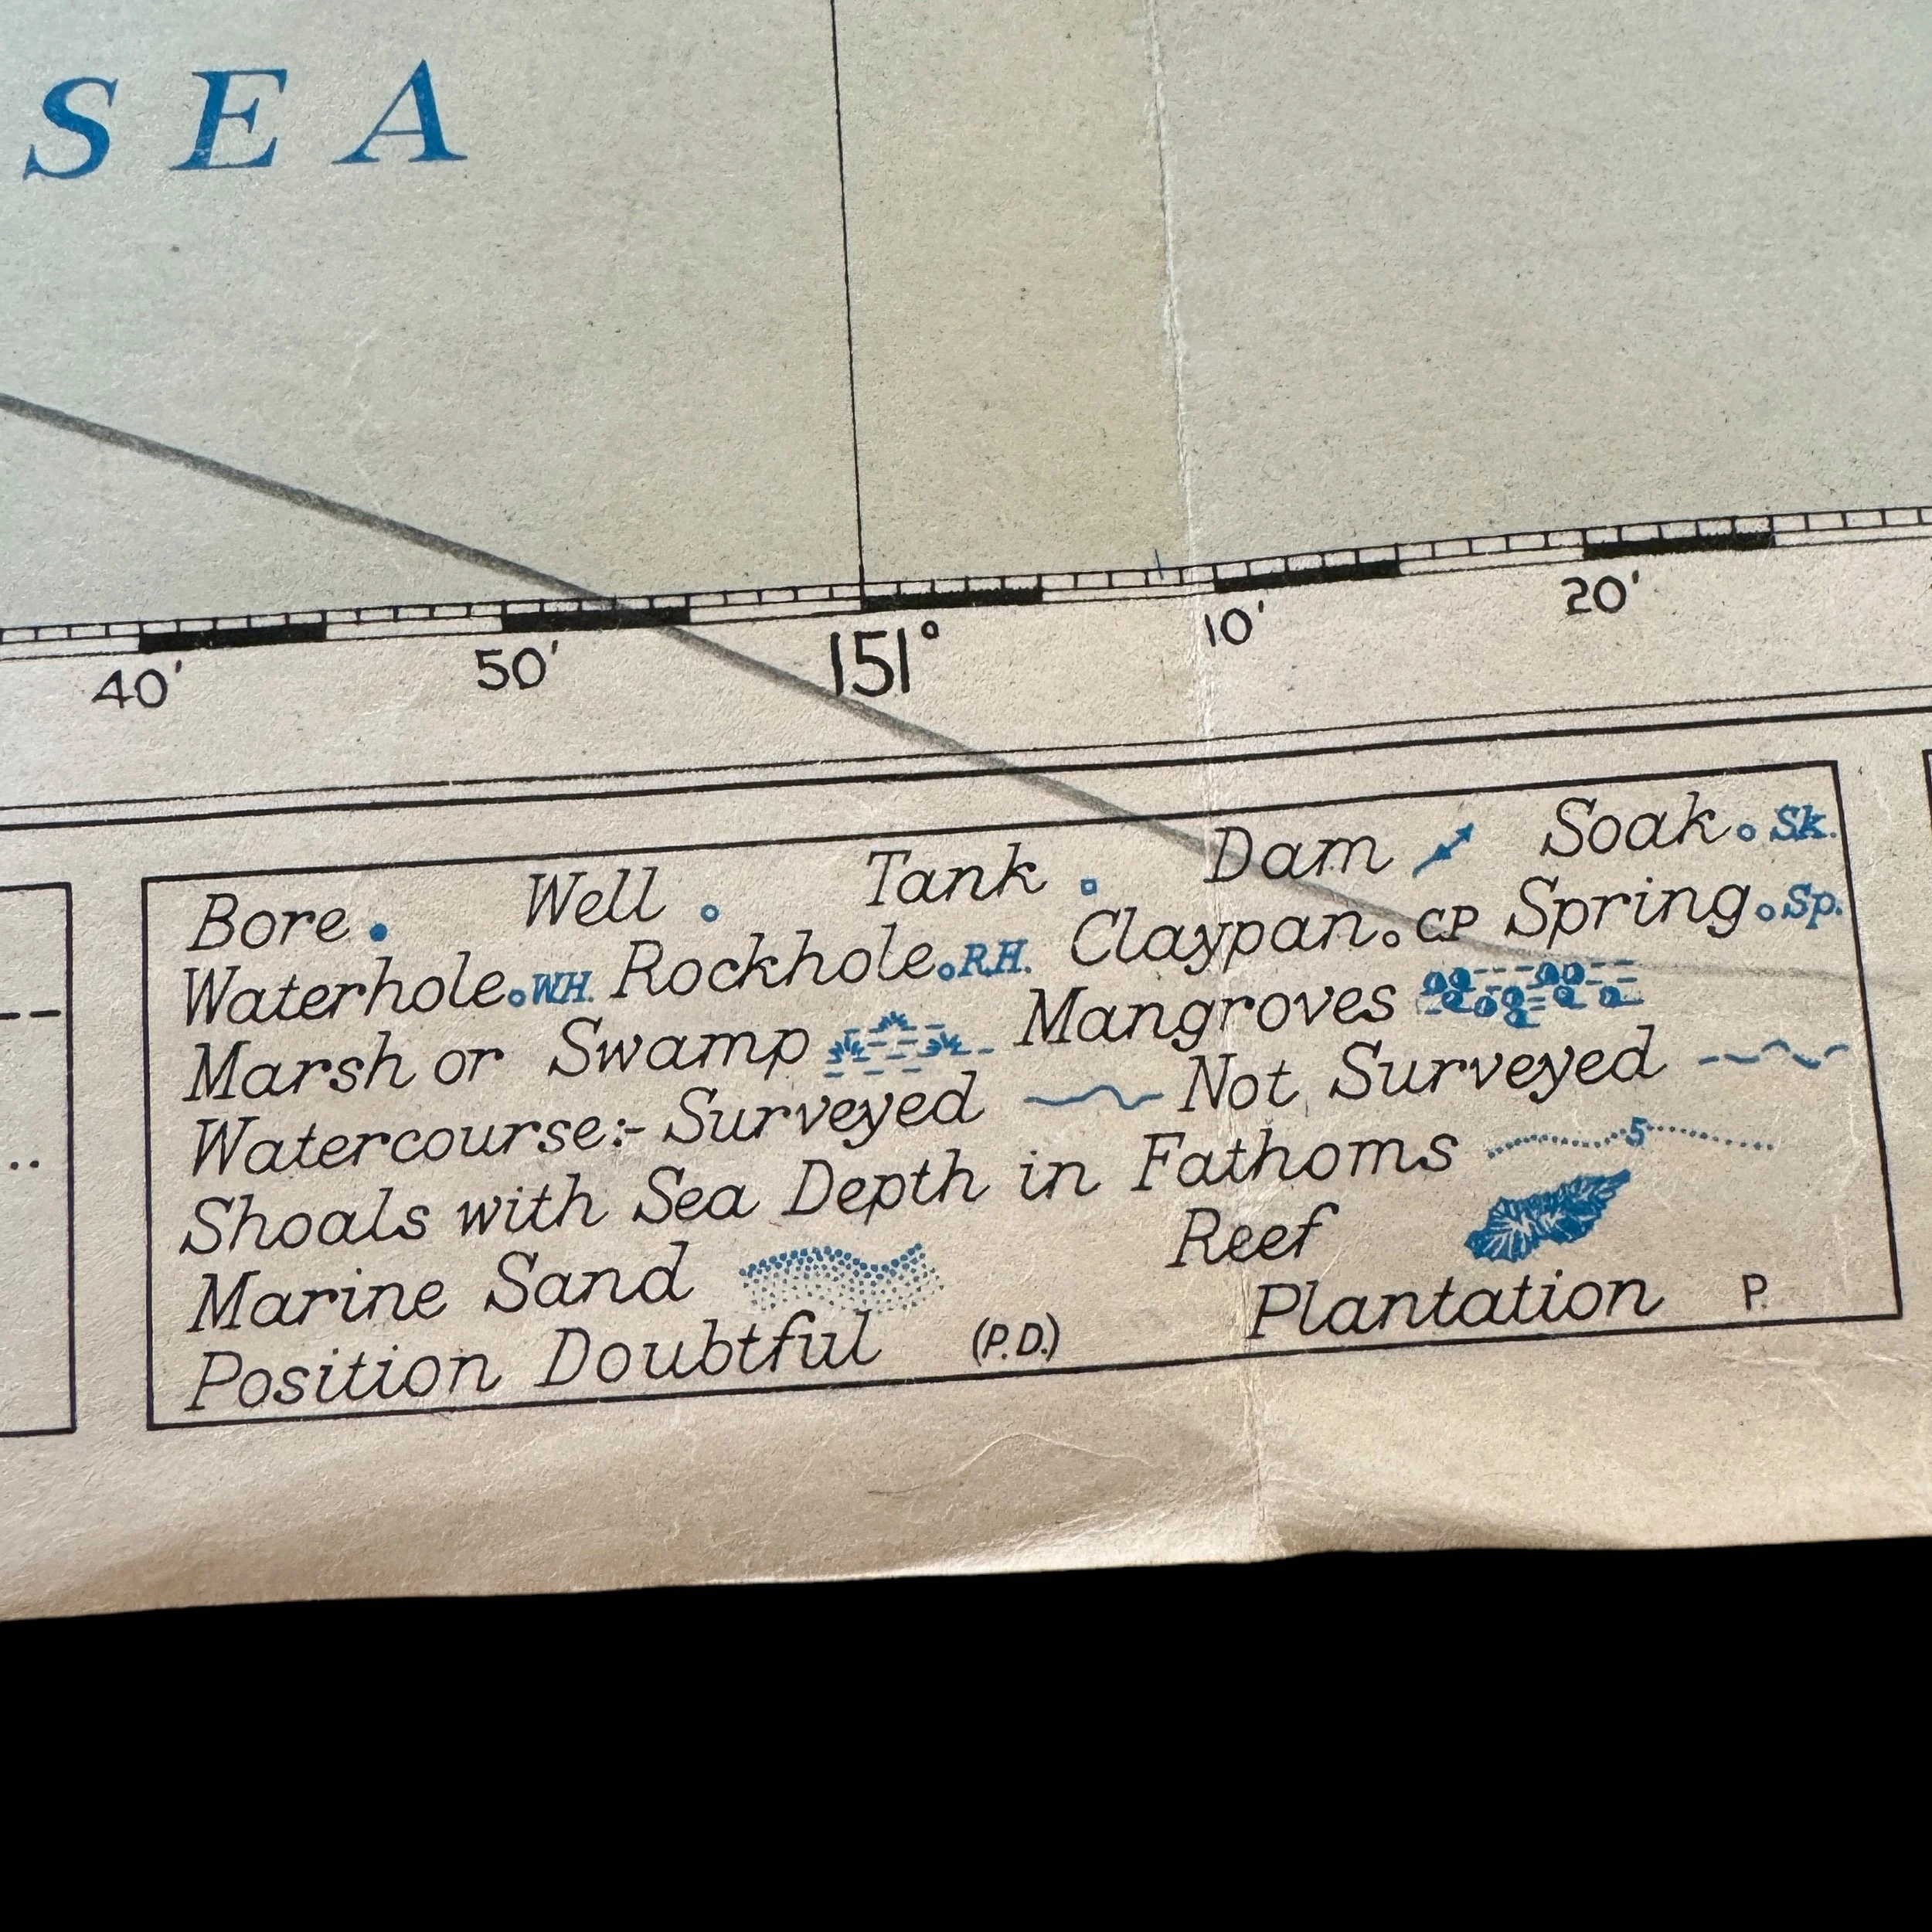 SEA
40' 50' 151° 10' 20'
Bore Well Tank Dam Soak Sk.
Waterhole WH. Rockhole R.H. Claypan CP Spring Sp.
Marsh or Swamp Mangroves
Watercourse:- Surveyed Not Surveyed
Shoals with Sea Depth in Fathoms 5
Marine Sand Reef
Position Doubtful (P.D.) Plantation P.